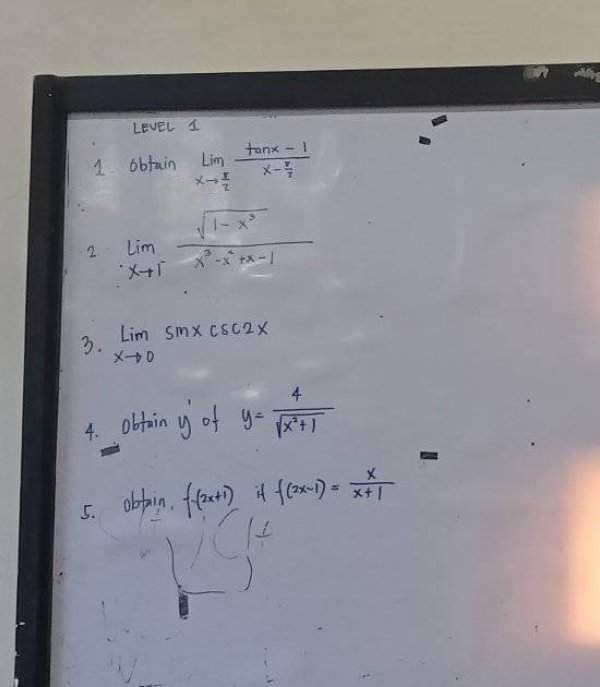 LEVEL 1
1. Obtain Lim x→π/2 (tanx - 1)/(x - π/2)
2. Lim x→1⁻ √(1 - x³)/(x³ - x² + x - 1)
3. Lim x→0 sinx csc2x
4. Obtain y' of y = 4/√(x²+1)
5. Obtain, f(2x+1) if f(2x-1) = x/(x+1)